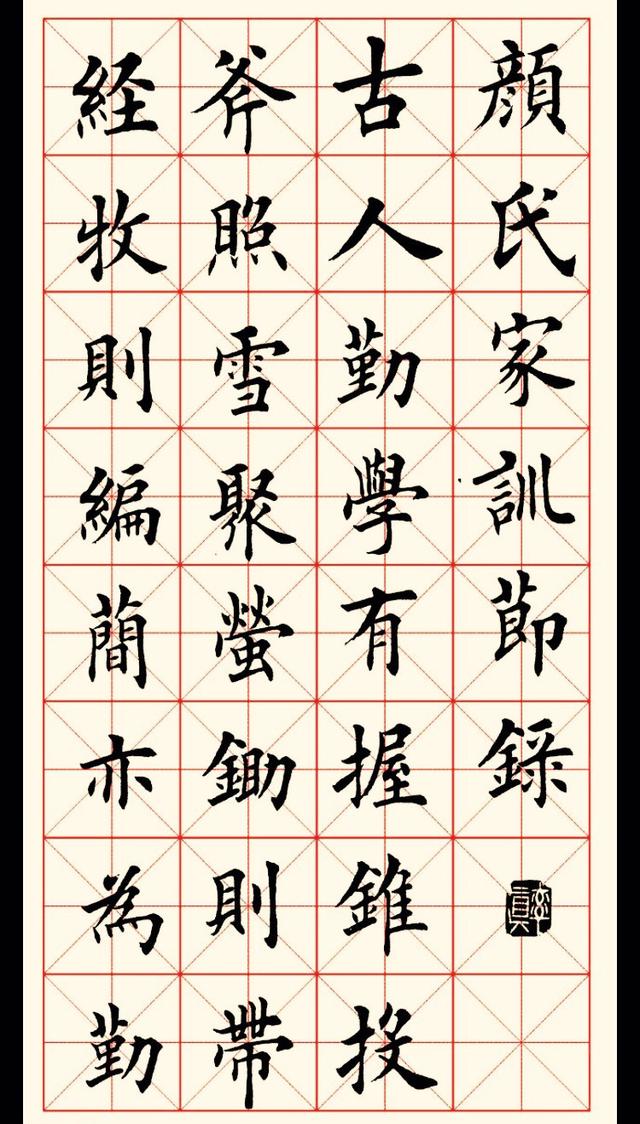 顔氏家訓節録
古人勤學有握錐投
斧照雪聚螢鋤則帶
経牧則編簡亦為勤
率真